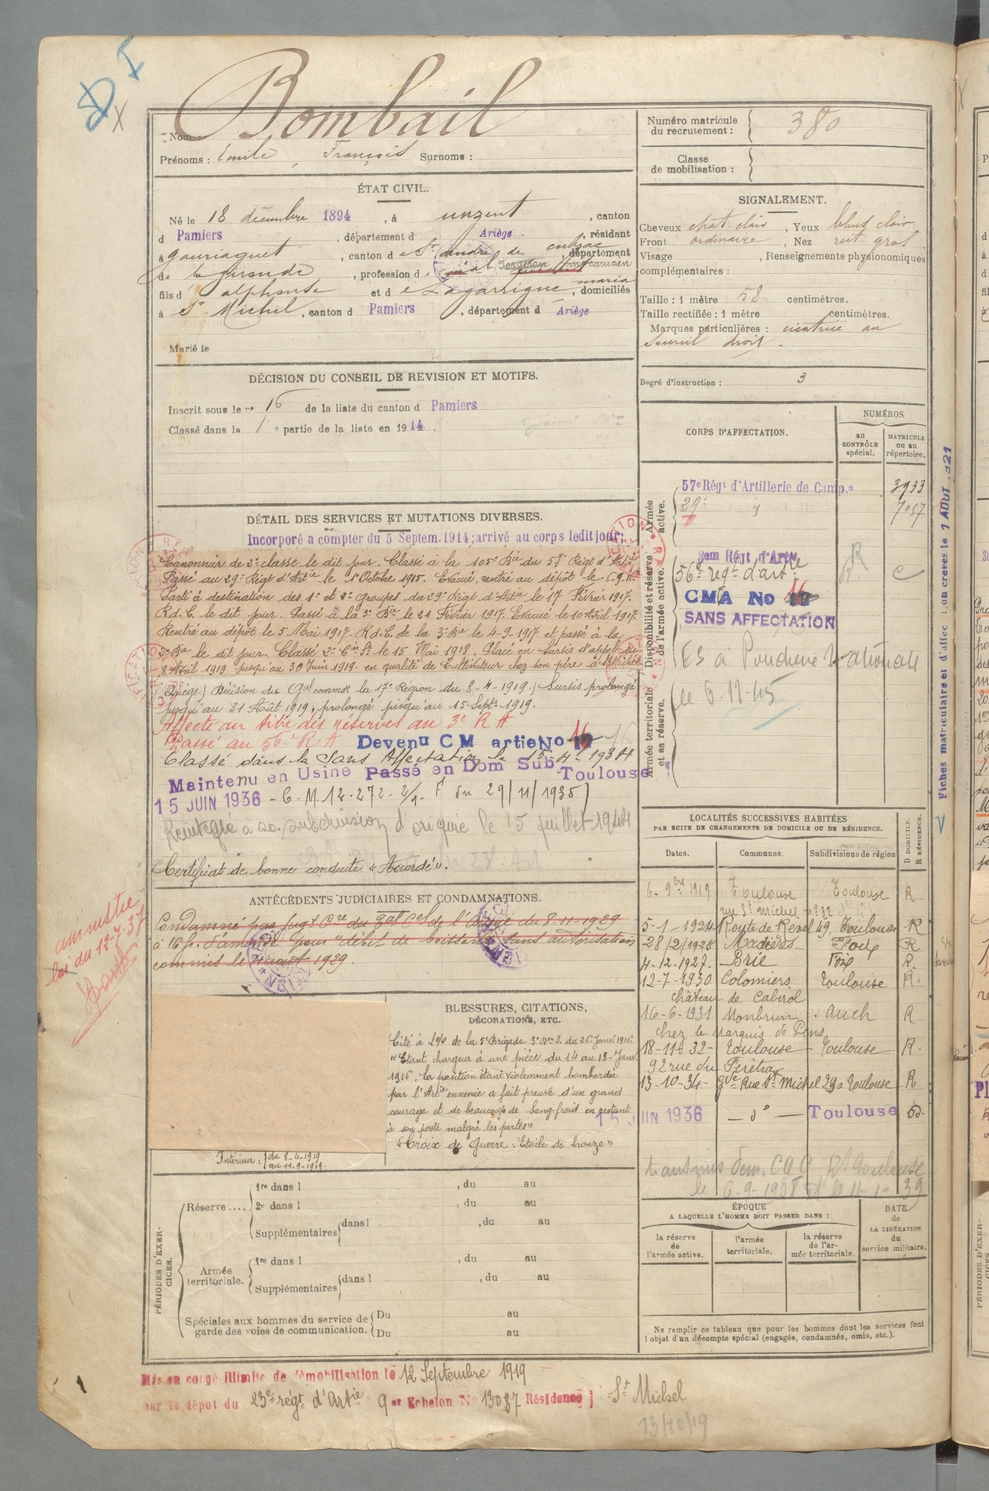 Nom : Bombail
Prénoms : Emile, François Surnoms :
Numéro matricule du recrutement : 380
Classe de mobilisation :
ÉTAT CIVIL.
Né le 18 décembre 1894, à unzent, canton
d Pamiers, département d Ariège, résidant
à gauriaguet, canton d e St andré de cubzac département
de la gironde, profession d
fils d alphonse et d e Lagarrigue maria, domiciliés
à St Michel, canton d Pamiers, département d Ariège
Marié le
SIGNALEMENT.
Cheveux chat. clair, Yeux bleus clair
Front ordinaire, Nez rect. gros
Visage , Renseignements physionomiques
complémentaires :
Taille : 1 mètre 58 centimètres.
Taille rectifiée : 1 mètre centimètres.
Marques particulières : cicatrice au
sourcil droit.
Degré d'instruction : 3
DÉCISION DU CONSEIL DE REVISION ET MOTIFS.
Inscrit sous le n° 16 de la liste du canton d Pamiers
Classé dans la 1 e partie de la liste en 1914.
DÉTAIL DES SERVICES ET MUTATIONS DIVERSES.
Incorporé à compter du 5 Septem. 1914; arrivé au corps ledit jour;
Canonnier de 2e classe le dit jour. Classé à la 105e Bie du 57e Régt d'Artie
Passé au 29e Régt d'Artie le 1er Octobre 1915. Evacué, rentré au dépôt le
Parti à destination des 1er et 2e Groupes du 29e Régt d'Artie le 17 Février 1917.
R.d.C. le dit jour. Passé à la 3e Bie le 21 Février 1917. Evacué le 10 Avril 1917
Rentré au dépôt le 5 Mai 1917. R.d.C. de la 3e Bie le 4-9-1917 et passé à la
2e Bie le dit jour. Classé le 15 Mai 1918. Placé en sursis d'appel du
8 Avril 1919 jusqu'au 30 Juin 1919. en qualité de Cultivateur chez son père à St Michel
(Ariège) Décision du Gal commt la 17e Région du 8-4-1919. Sursis prolongé
jusqu'au 31 Août 1919, prolongé jusqu'au 15 Septe 1919.
Affecté au titre des réserves au 3e R A
Passé au 56e R A Devenu C M artie No 16
Classé dans la Sans Affectation le 15-4-1934
Maintenu en Usine Passé en Dom Sub. Toulouse
15 JUIN 1936 - C.M. 12.272-2/1. F du 29/11/1935)
Réintégré à sa subdivision d'origine le 15 juillet 1944
Certificat de bonne conduite « Accordé ».
CORPS D'AFFECTATION.
NUMÉROS
au CONTRÔLE spécial.
MATRICULE ou au répertoire.
Armée active.
57e Régt d'Artillerie de Camp.e 3933
29e " 7057
Disponibilité et réserve de l'armée active.
3em Régt d'Arti
56e régt d'artie
CMA No 16
SANS AFFECTATION
ES à Poudrerie Nationale
le 6-11-45
Armée territoriale et sa réserve.
ANTÉCÉDENTS JUDICIAIRES ET CONDAMNATIONS.
Condamné par jugt Cre du Bal Ciel de l'Ariège du 8-11-1929
à 16 f. d'amende pour "débit de boissons" sans autorisation
commis le août 1929.
amnistié
loi du 12-7-37
BLESSURES, CITATIONS, DÉCORATIONS, ETC.
Cité à l'O/ de la 5e Brigade du 26 Janv. 1916.
« Etant chargeur à une pièce du 14 au 18-Janv
1916, la position étant violemment bombardée
par l'Artie ennemie a fait preuve d'un grand
courage et de beaucoup de sang-froid en restant
à son poste malgré les pertes »
Croix de Guerre « Etoile de bronze »
Intérieur : du 8-4-1919
au 11-9-1919.
LOCALITÉS SUCCESSIVES HABITÉES
PAR SUITE DE CHANGEMENTS DE DOMICILE OU DE RÉSIDENCE.
Dates. Communes. Subdivisions de région D DOMICILE. R RÉSIDENCE.
6-9bre 1919 Toulouse Toulouse R
rue St Michel no 32
5-1-1924 Route de Revel 49. Toulouse R
28/2/1926 Mazères Foix R
4-12-1927. Brie Foix R
12-7-1930 Colomiers Toulouse R.
château de Cabirol
16-6-1931 Monbrun Auch R
chez le Marquis de Pins
18-11-32- Toulouse Toulouse R.
92 rue du Férétra
13-10-34- Gde Rue St Michel 29a Toulouse R
15 JUIN 1936 — do — Toulouse D.
le 6-9-1938
PÉRIODES D'EXERCICES.
Réserve....
1re dans l , du au
2e dans l , du au
Supplémentaires dans l , du au
Armée territoriale.
1re dans l , du au
Supplémentaires dans l , du au
Spéciales aux hommes du service de garde des voies de communication.
Du au
Du au
ÉPOQUE
A LAQUELLE L'HOMME DOIT PASSER DANS :
la réserve de l'armée active.
l'armée territoriale.
la réserve de l'armée territoriale.
DATE de LA LIBÉRATION du service militaire.
Ne remplir ce tableau que pour les hommes dont les services font
l'objet d'un décompte spécial (engagés, condamnés, omis, etc.).
Mis en congé illimité de démobilisation le 12 Septembre 1919
par le dépôt du 23e régt d'Artie 9 er Echelon No 13087 Résidence] St Michel
13/10/19